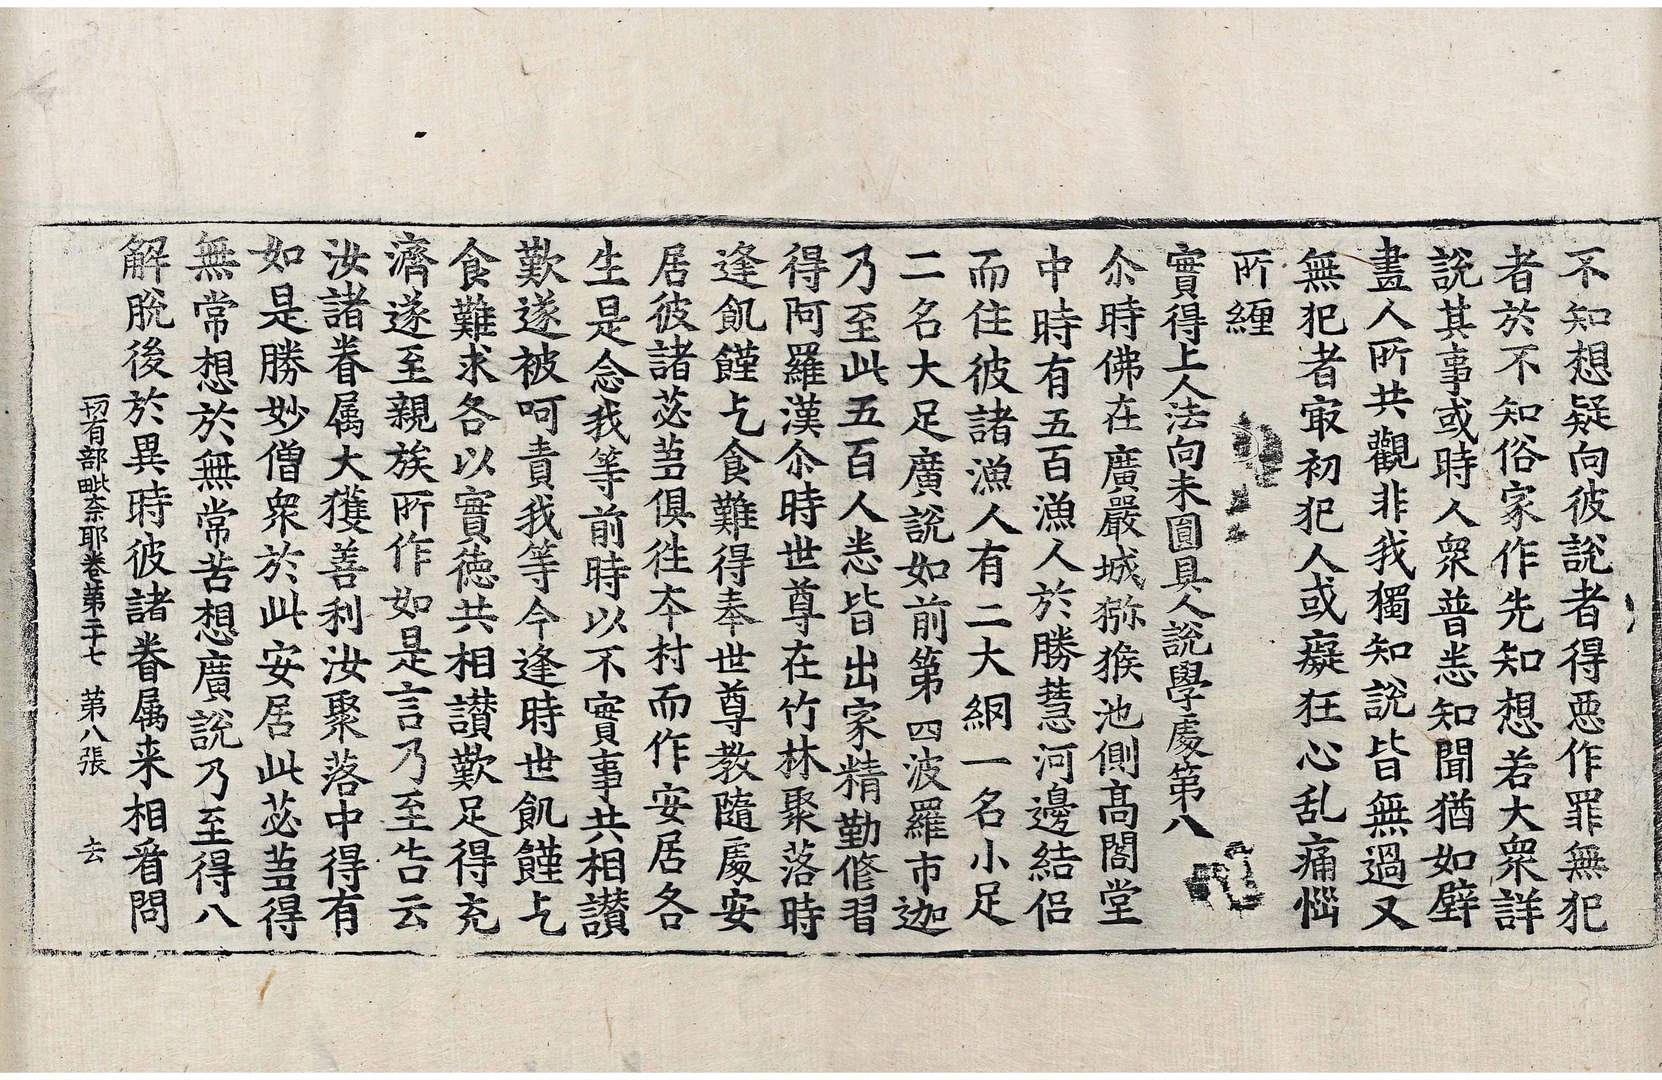 不知想疑向彼說者得惡作罪無犯
者於不知俗家作先知想若大衆詳
說其事或時人衆普悉知聞猶如壁
畫人所共觀非我獨知說皆無過又
無犯者㝡初犯人或癡狂心乱痛惱
所纏
實得上人法向未圓具人說學處第八
尒時佛在廣嚴城猕猴池側高閣堂
中時有五百漁人於勝慧河邊結侣
而住彼諸漁人有二大網一名小足
二名大足廣說如前第四波羅市迦
乃至此五百人悉皆出家精勤修習
得阿羅漢尒時世尊在竹林聚落時
逢飢饉乞食難得奉世尊教隨處安
居彼諸苾芻俱徃夲村而作安居各
生是念我等前時以不實事共相讃
歎遂被呵責我等今逢時世飢饉乞
食難求各以實徳共相讃歎足得充
濟遂至親族所作如是言乃至告云
汝諸眷属大獲善利汝聚落中得有
如是勝妙僧衆於此安居此苾芻得
無常想於無常苦想廣說乃至得八
解脫後於異時彼諸眷属来相㸔問
一切有部毗柰耶卷第三十七 第八張 去